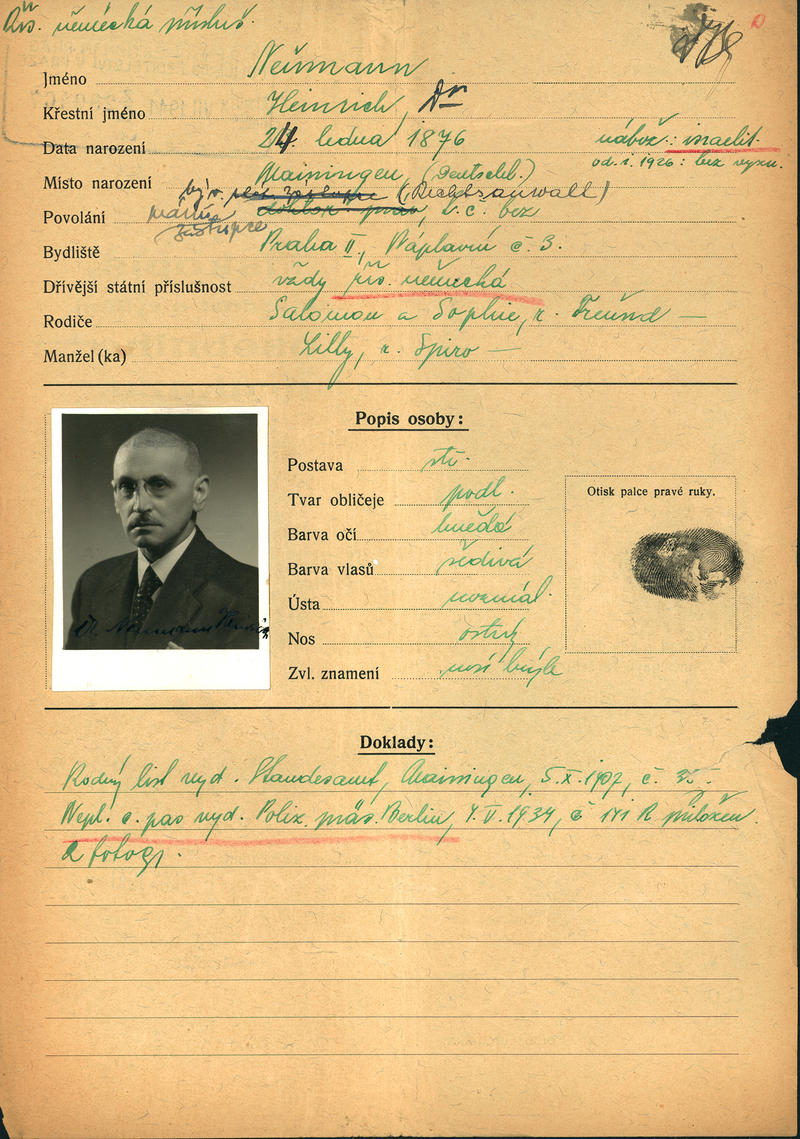 německá přísluš.
Jméno Neumann
Křestní jméno Heinrich, Dr
Data narození 24 ledna 1876 nábož.: israelit.
od. r. 1926: bez vyzn.
Místo narození Mainingen, (Deutschl.)
(Rechtsanwalt)
Povolání t. č. bez
zástupce
Bydliště Praha II., Náplavní č. 3.
Dřívější státní příslušnost vždy řís. německá
Rodiče Salomon a Sophie, r. Freund —
Manžel (ka) Lilly, r. Spiro —
Popis osoby:
Postava stř.
Tvar obličeje podl.
Barva očí hnědá
Barva vlasů šedivá
Ústa normál.
Nos ostrý
Zvl. znamení nosí brýle
Otisk palce pravé ruky.
Dr. Neumann Heinrich
Doklady:
Rodný list vyd. Standesamt, Mainingen, 5.X.1907, č.
Nepl. c. pas vyd. Poliz. präs. Berlin, 4.V.1934, č R přiložen.
2 fotogr.